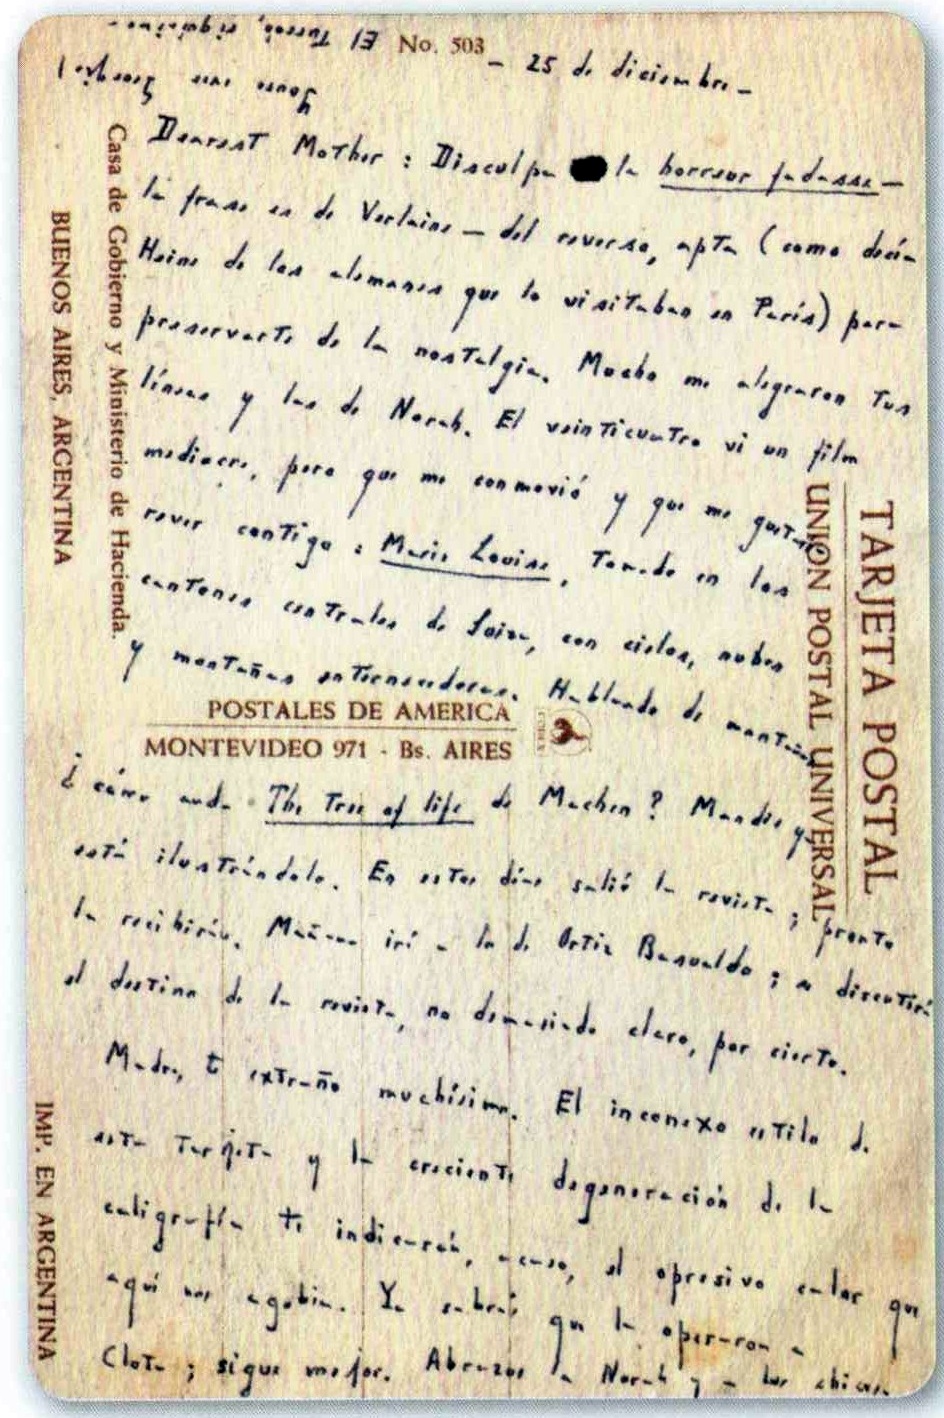 No. 503
- 25 de diciembre -
Dearest Mother: Disculpa la horreur fadasse -
la frase es de Verlaine - del reverso, apta (como decía
Heine de los alemanes que lo visitaban en París) para
preservarte de la nostalgia. Mucho me alegraron tus
líneas y las de Norah. El veinticuatro vi un film
mediocre, pero que me conmovió y que me gustaría
rever contigo: Marie Louise, tomado en los
cantones centrales de Suiza, con cielos, nubes
y montañas enternecedoras. Hablando de montañas
POSTALES DE AMERICA
MONTEVIDEO 971 - Bs. AIRES
¿cómo anda The tree of life de Machen? Mandie ya
está ilustrándolo. En estos días salió la revista; pronto
la recibirás. Mañana iré a lo de Ortiz Basualdo; se discutirá
el destino de la revista, no demasiado claro, por cierto.
Madre, te extraño muchísimo. El inconexo estilo de
esta tarjeta y la creciente degeneración de la
caligrafía te indicarán, acaso, el opresivo calor que
aquí nos agobia. Ya sabrás que la operaron a
Clota; sigue mejor. Abrazos a Norah y a los chicos.
Tuyo, siquísimo -
El
Georgie!
Casa de Gobierno y Ministerio de Hacienda.
BUENOS AIRES, ARGENTINA
IMP. EN ARGENTINA
TARJETA POSTAL
UNION POSTAL UNIVERSAL